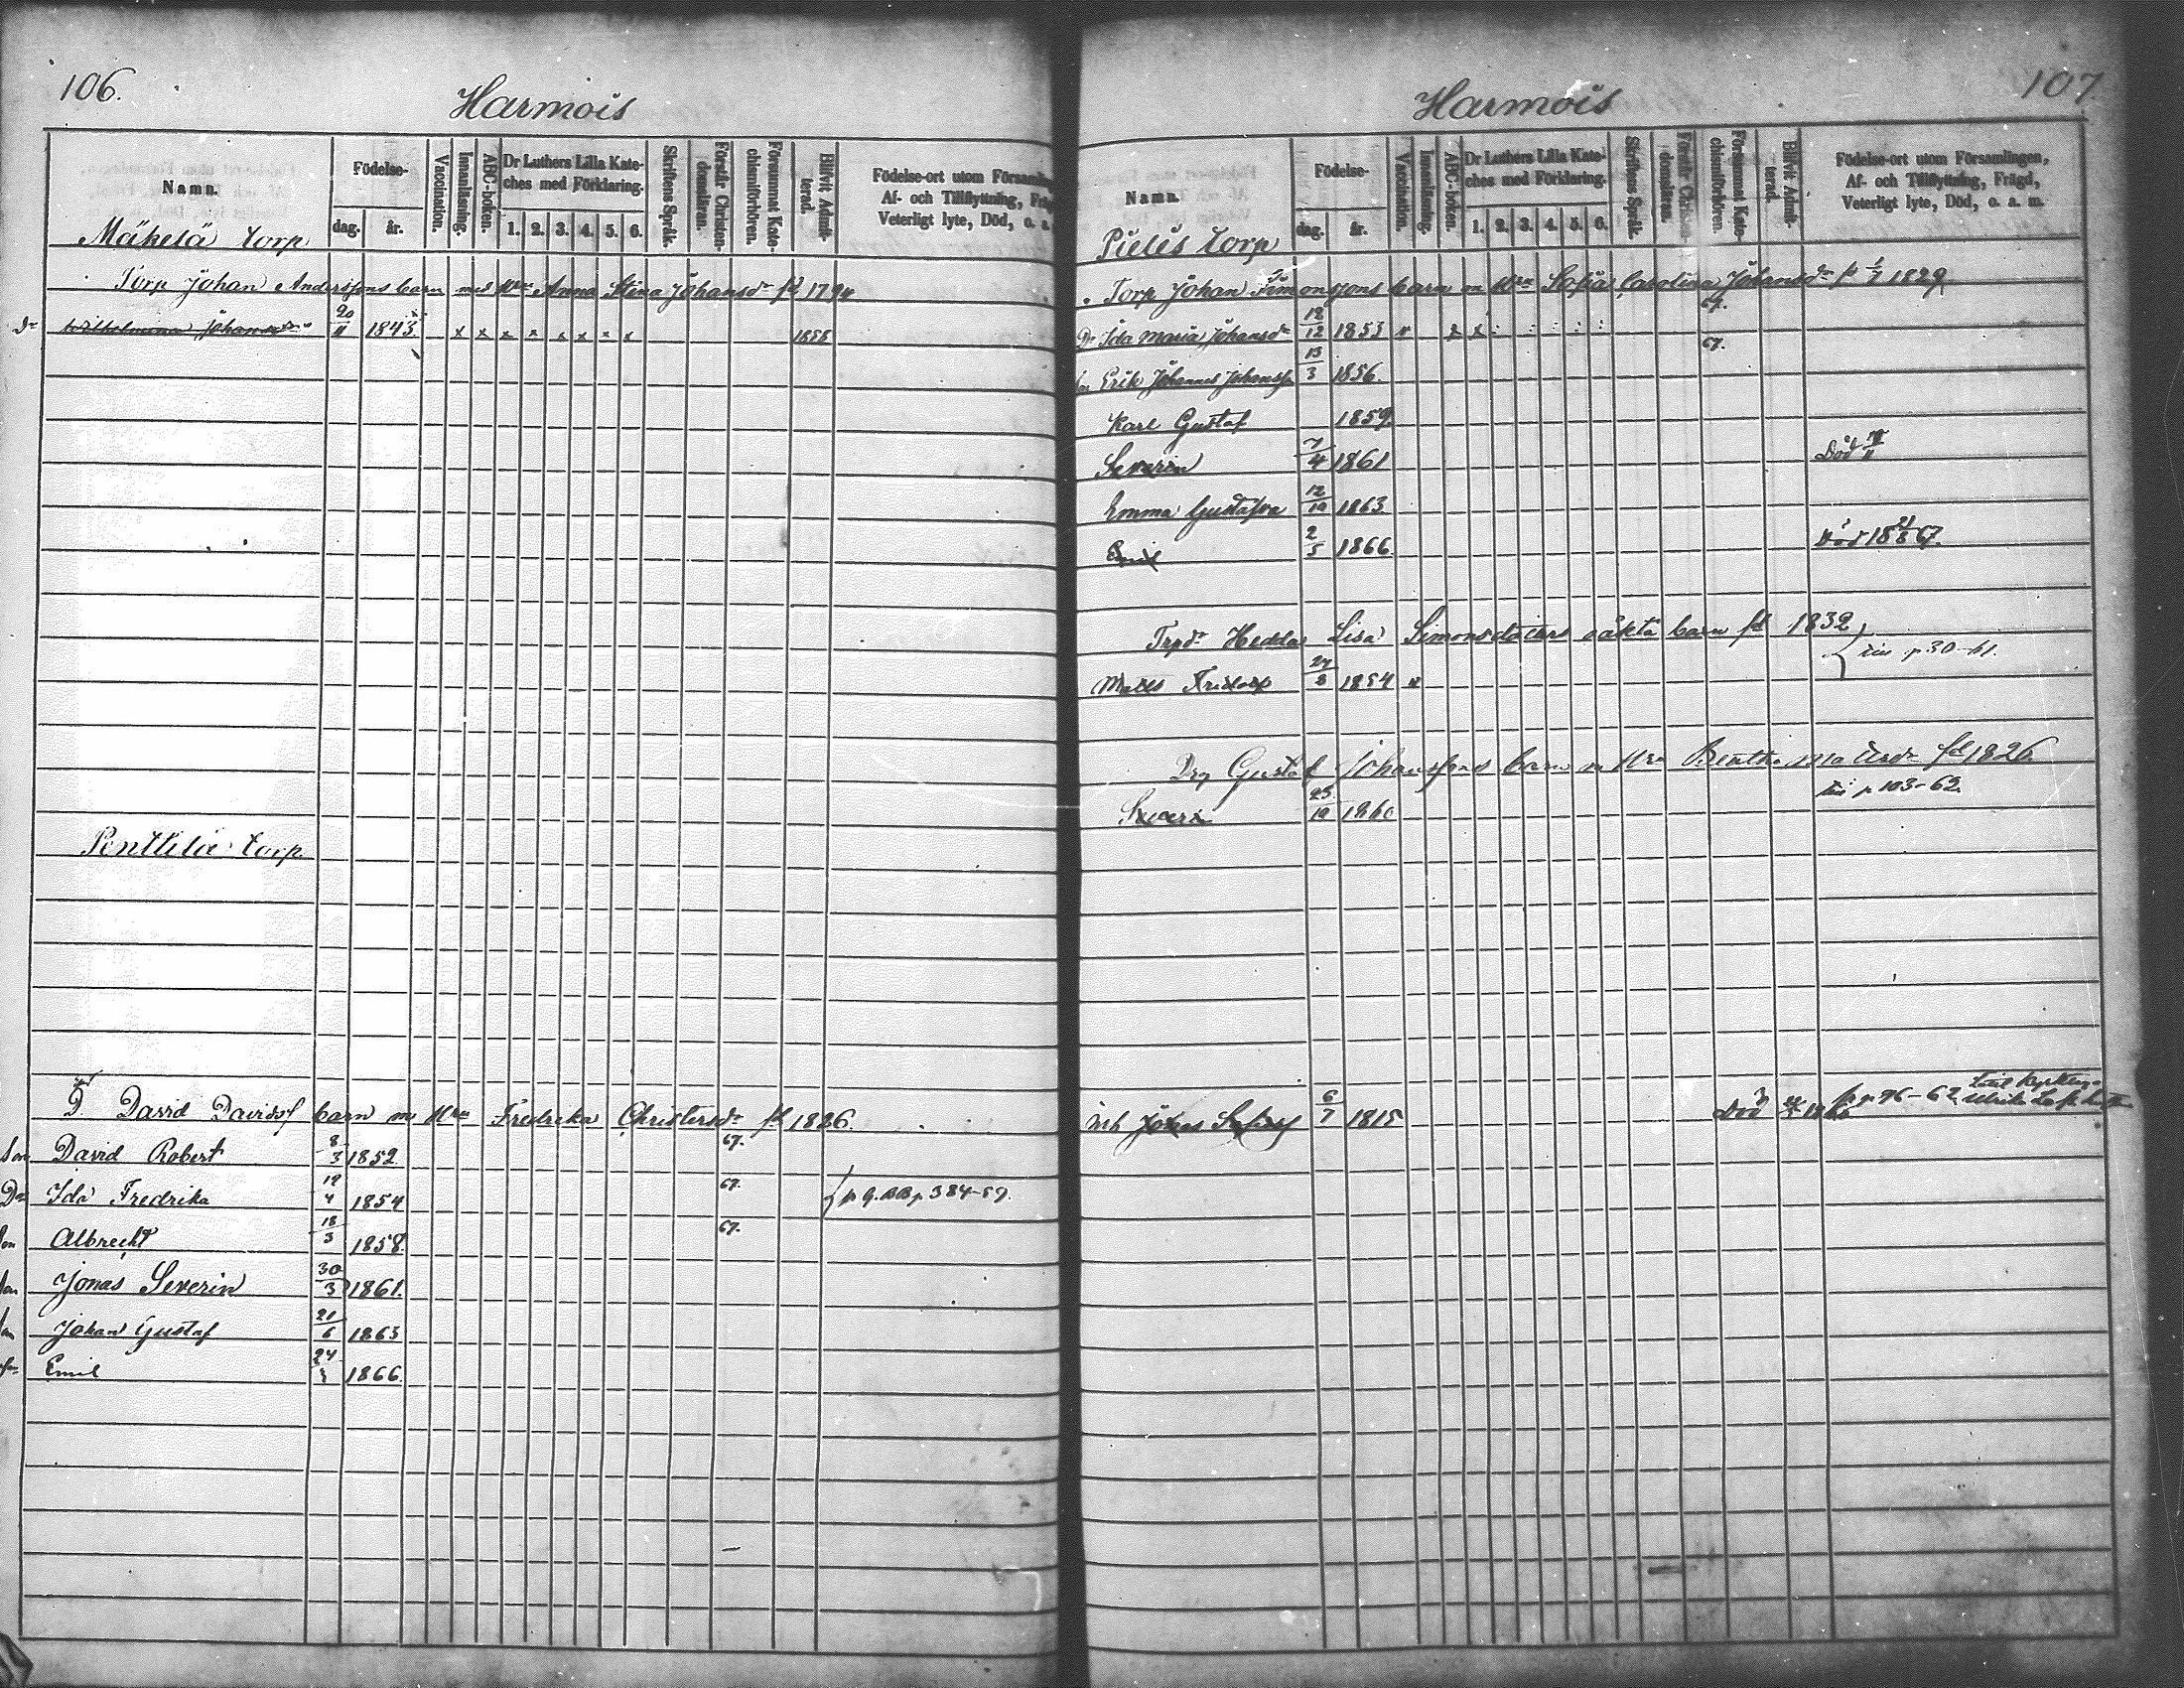 106.
Harmois
Namn.
Födelse-
dag.
år.
Vaccination.
Innanläsning.
ABC-boken.
Dr Luthers Lilla Kate-
ches med Förklaring.
1. 2. 3. 4. 5. 6.
Skriftens Språk.
Förstår Christen-
domsläran.
Försummat Kate-
chismiförhören.
Blifvit Admit-
terad.
Födelse-ort utom Församlin
Af- och Tillflyttning, Fräg
Veterligt lyte, Död, o. a.
Mäkelä torp
Torp Johan Anderssons barn med Hru Anna Stina Johansdr fd 1794
Dr Wilhelmina Johansdr 20/11 1843 x x x x x x x x
Penttilä torp
D. David Davidsf barn m Hru Fredrika Christersdr fd 1826.
Son David Robert 8/3 1852 67.
Dr Ida Fredrika 19/4 1854 67. p 9. BB p 384-59.
Son Albrecht 18/3 1858. 67.
Son Jonas Severin 30/3 1861.
Son Johan Gustaf 21/6 1863
Emil 24 1866.
107
Harmois
Namn.
Födelse-
dag.
år.
Vaccination.
Innanläsning.
ABC-boken.
Dr Luthers Lilla Kate-
ches med Förklaring.
1. 2. 3. 4. 5. 6.
Skriftens Språk.
Förstår Christen-
domsläran.
Försummat Kate-
chismiförhören.
Blifvit Admit-
terad.
Födelse-ort utom Församlingen,
Af- och Tillflyttning, Frägd,
Veterligt lyte, Död, o. a. m.
Pielis torp
Torp Johan Simonssons barn m Hru Sofia Carolina Johansdr fd 1829
Dr Ida Maria Johansdr 12/12 1853 67.
Son Erik Johannes Johansf 13/3 1856. 67.
Karl Gustaf 1859
Severin 7/4 1861 Död
Emma Gustafva 12/10 1863
Emil 2/5 1866 Död 18 67.
Trpdr Hedda Lisa Simonsdotters oäkta barn fd 1832
Mats Fridolf 1854 p 30-61.
Drg Gustaf Johanssons barn m Hru fd 1826
1860 p 103-62.
Inh Jonas 6/7 1815 Död p 96-62